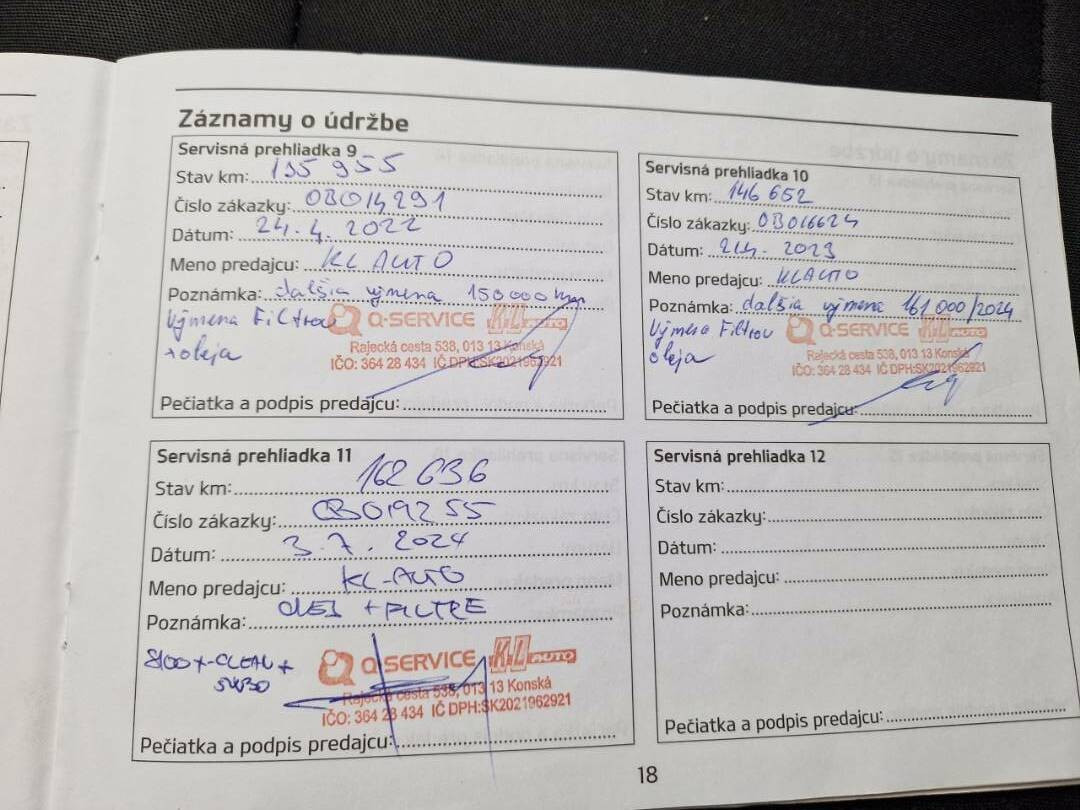 Záznamy o údržbe
Servisná prehliadka 9
Stav km: 135 955
Číslo zákazky: OBO14291
Dátum: 24. 4. 2022
Meno predajcu: KL AUTO
Poznámka: dalšia výmena 150 000 km
Výmena Filtrov
+ oleja
Q-SERVICE K&L AUTO
Rajecká cesta 538, 013 13 Konská
IČO: 364 28 434 IČ DPH:SK2021962921
Pečiatka a podpis predajcu:
Servisná prehliadka 10
Stav km: 146 652
Číslo zákazky: OBO16624
Dátum: 21.4. 2023
Meno predajcu: KL AUTO
Poznámka: dalšia výmena 161 000/2024
Výmena Filtrov
oleja
Q-SERVICE K&L AUTO
Rajecká cesta 538, 013 13 Konská
IČO: 364 28 434 IČ DPH:SK2021962921
Pečiatka a podpis predajcu:
Servisná prehliadka 11
Stav km: 162 636
Číslo zákazky: OBO19255
Dátum: 3. 7. 2024
Meno predajcu: KL-AUTO
Poznámka: OLEJ + FILTRE
8100 X-CLEAN +
5W30
Q-SERVICE K&L AUTO
Rajecká cesta 538, 013 13 Konská
IČO: 364 28 434 IČ DPH:SK2021962921
Pečiatka a podpis predajcu:
Servisná prehliadka 12
Stav km:
Číslo zákazky:
Dátum:
Meno predajcu:
Poznámka:
Pečiatka a podpis predajcu:
18